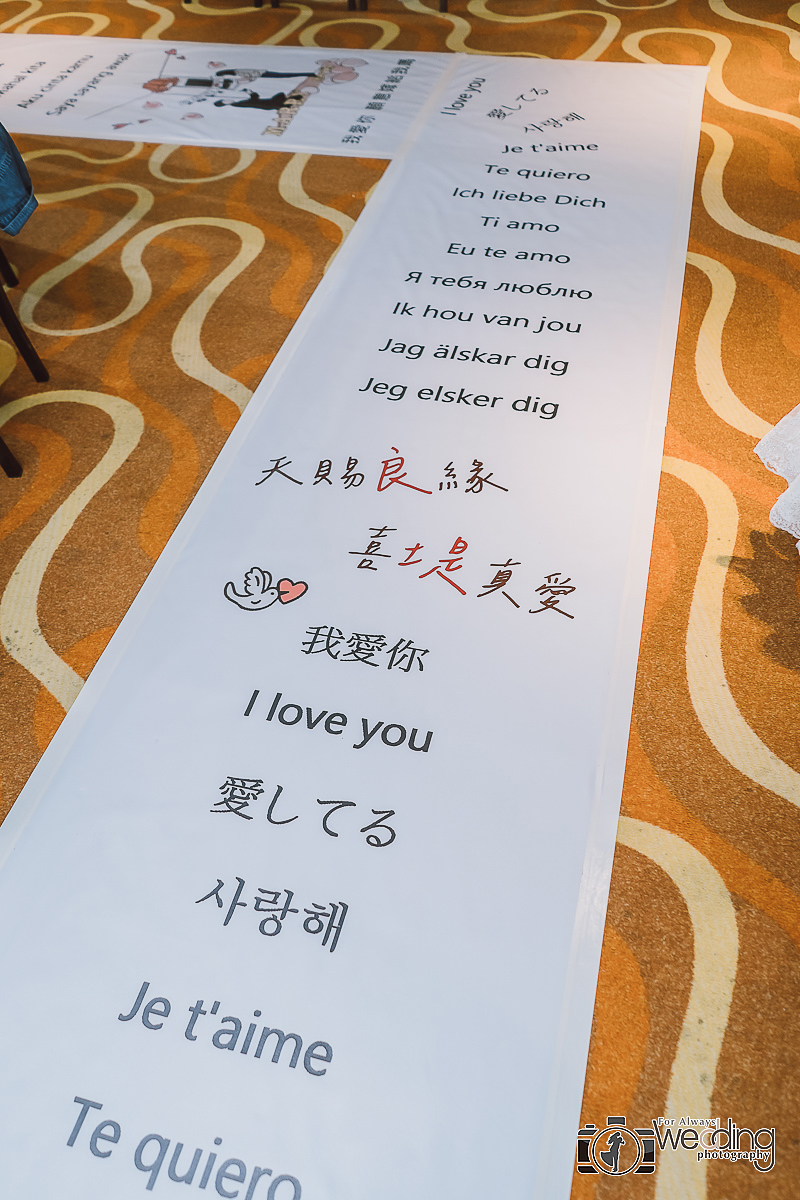 Aku cinta kamu
Saya sayang awak
我愛你 願意嫁給我嗎
I love you
愛してる
사랑해
Je t'aime
Te quiero
Ich liebe Dich
Ti amo
Eu te amo
Я тебя люблю
Ik hou van jou
Jag älskar dig
Jeg elsker dig
天賜良緣
喜堤真愛
我愛你
I love you
愛してる
사랑해
Je t'aime
Te quiero
For Always
Wedding
photography